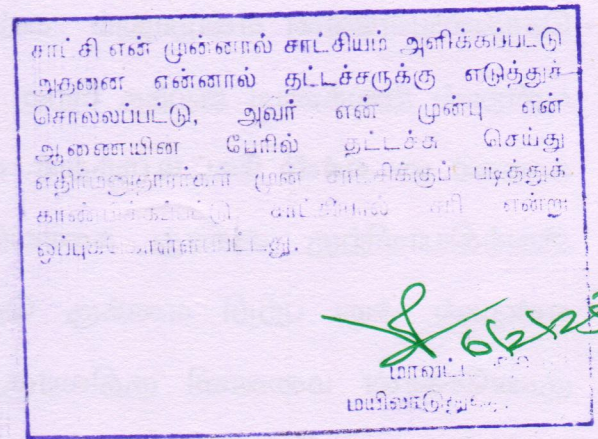 சாட்சி என் முன்னால் சாட்சியம் அளிக்கப்பட்டு
அதனை என்னால் தட்டச்சருக்கு எடுத்துச்
சொல்லப்பட்டு, அவர் என் முன்பு என்
ஆணையின பேரில் தட்டச்சு செய்து
எதிர்மனுதாரர்கள் முன் சாட்சிக்குப் படித்துக்
காண்பிக்கப்பட்டு சாட்சியால் சரி என்று
ஒப்புக்கொள்ளப்பட்டது.